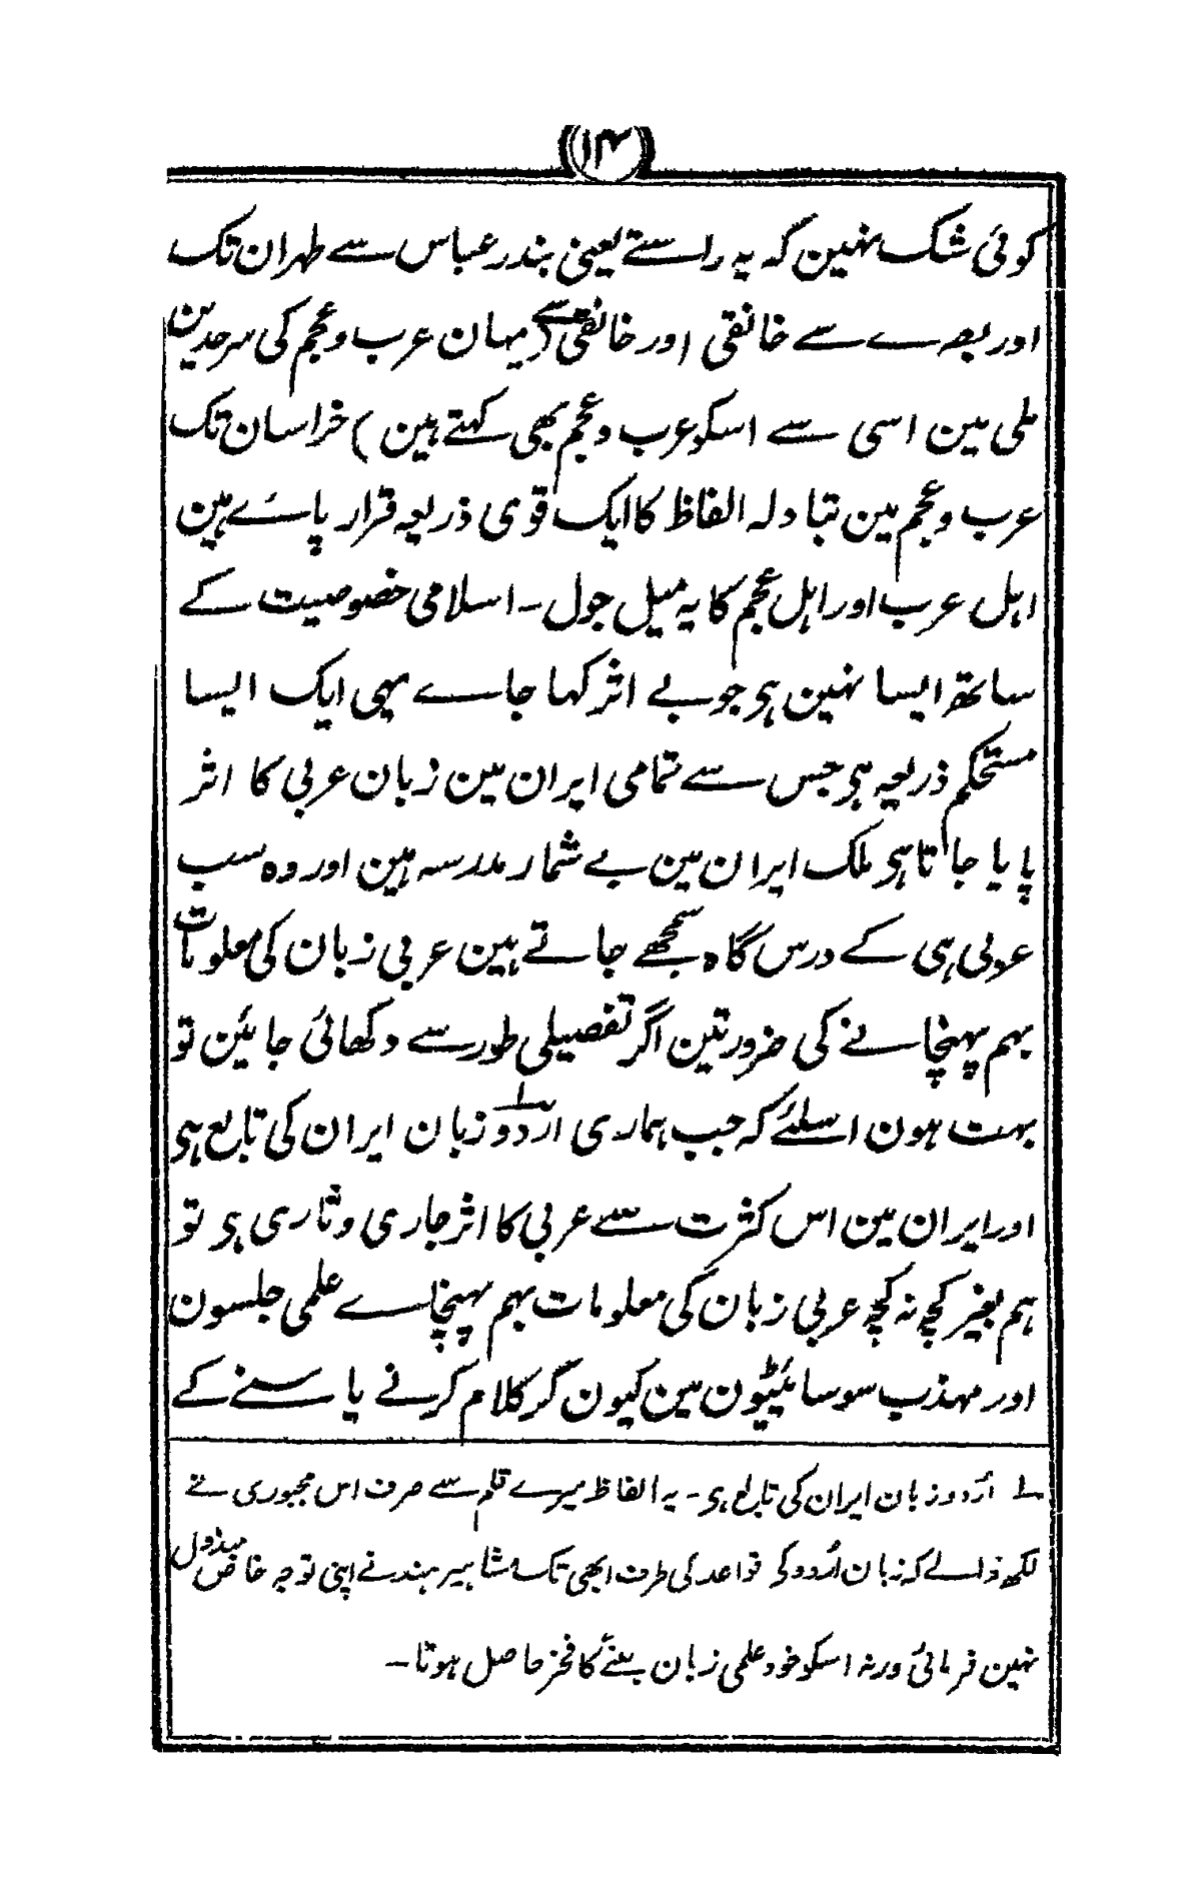 ۱۴
کوئی شک نہین کہ یہ راستے یعنی بندر عباس سے طہران تک
اور بصرے سے خانقی اور خانقی سے (یہان عرب و عجم کی سرحدین
ملی مین اسی سے اسکو عرب و عجم بھی کہتے ہین) خراسان تک
عرب و عجم مین تبادلہ الفاظ کا ایک قوی ذریعہ قرار پائے ہین
اہل عرب اور اہل عجم کا یہ میل جول ۔ اسلامی خصوصیت کے
ساتھ ایسا نہین ہی جو بے اثر کہا جاے یہی ایک ایسا
مستحکم ذریعہ ہی جس سے تمامی ایران مین زبان عربی کا اثر
پایا جاتا ہی ملک ایران مین بے شمار مدرسہ ہین اور وہ سب
عربی ہی کے درس گاہ سمجھے جاتے ہین عربی زبان کی معلومات
بہم پہنچانے کی ضرورتین اگر تفصیلی طور سے دکھائی جائین تو
بہت ہون اسلئے کہ جب ہماری اردو ؂۱ زبان ایران کی تابع ہی
اور ایران مین اس کثرت سے عربی کا اثر جاری و ثاری ہی تو
ہم بغیر کچھ نہ کچھ عربی زبان کی معلومات بہم پہنچاے علمی جلسون
اور مہذب سوسائیٹیون مین کیون کر کلام کرنے یا سننے کے
؂۱ اُردو زبان ایران کی تابع ہی ۔ یہ الفاظ میرے قلم سے صرف اس مجبوری نے
لکھو ڈالے کہ زبان اُردو کی قواعد کی طرف ابھی تک مشاہیر ہند نے اپنی توجہ خاص مبذول
نہین فرمائی ورنہ اسکو خود علمی زبان بننے کا فخر حاصل ہوتا ۔